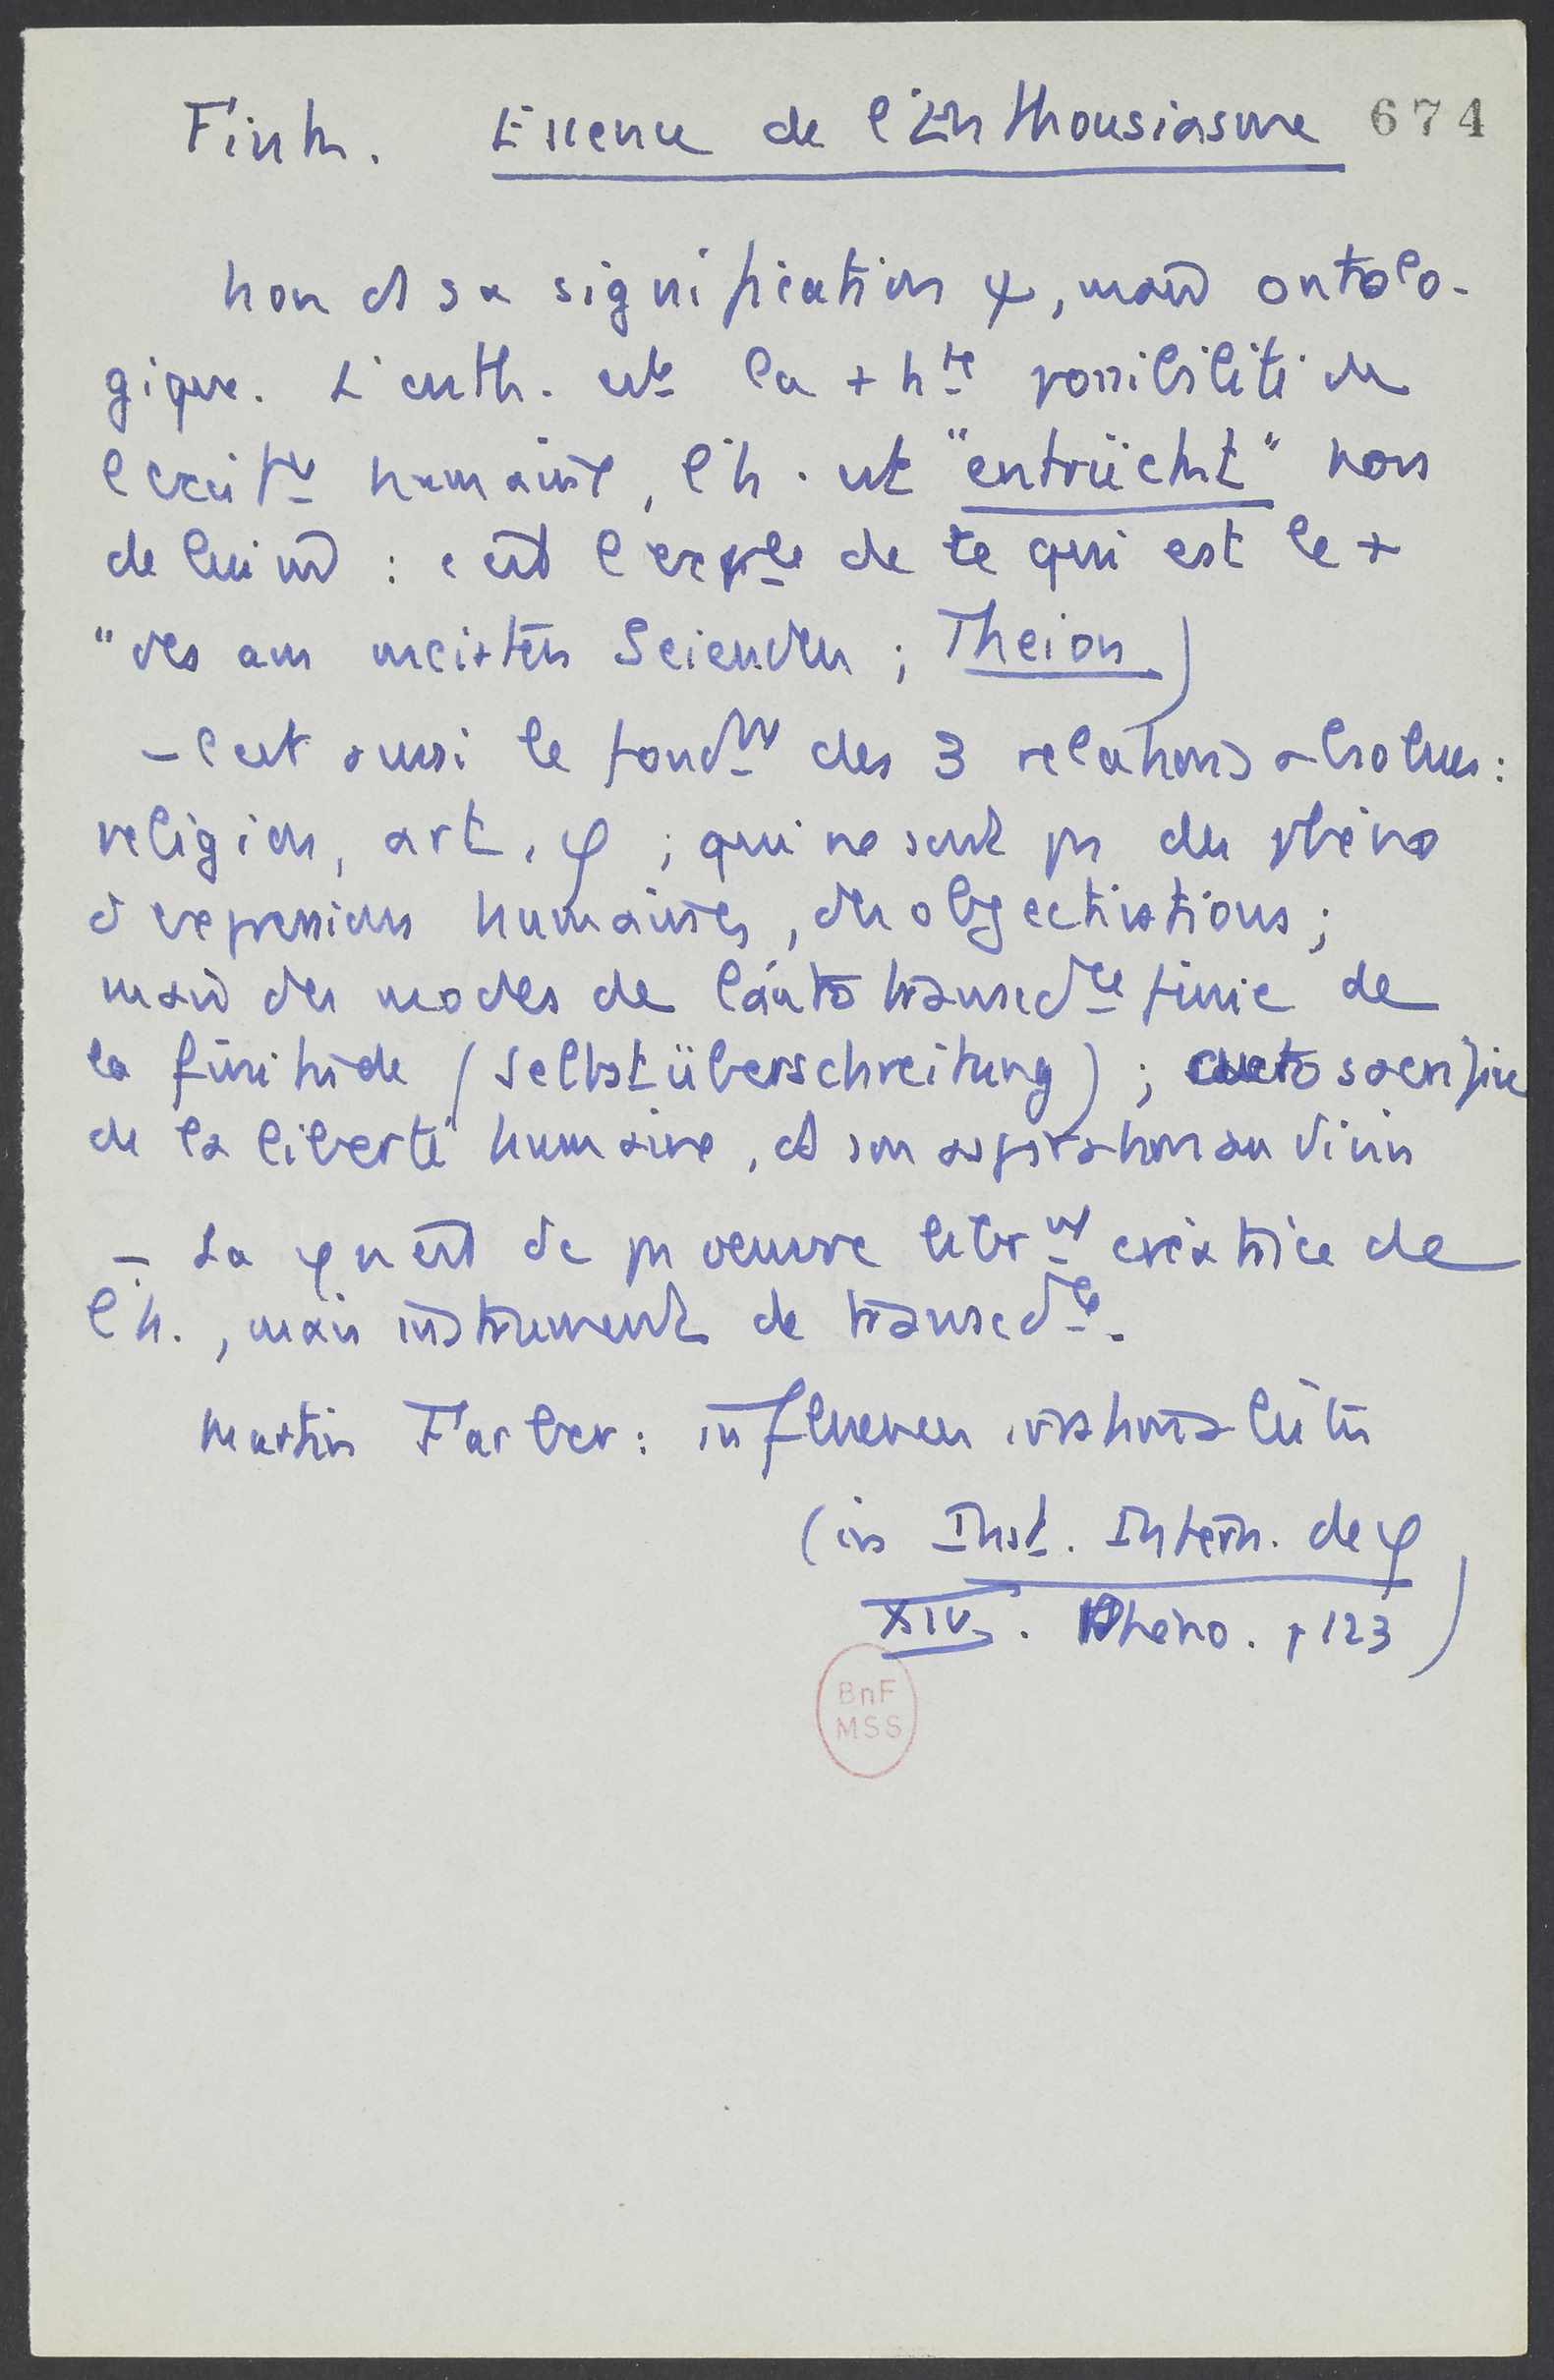 Fink. Essence de l'Enthousiasme 674
non ds sa signification ψ, mais ontolo-
gique. L'enth. est la + hte possibilité de
l'existce humaine, l'h. est "entrückt" hors
de lui m̂ : c'est l'expce de ce qui est le +
"des am meisten Seienden ; Theion)
- C'est aussi le fondmt des 3 relations absolues :
religion, art, φ ; qui ne sont pas des phéno
d'expressions humaines, des objectivations ;
mais des modes de l'auto transcdce finie de
la finitude (Selbstüberschreitung) ; auto sacrifice
de la liberté humaine, ds son aspiration au divin
- La φ n'est dc pas oeuvre librmt créatrice de
l'h., mais instrument de transcdce.
Martin Farber : influences irrationalistes
(in Inst. Intern. de φ
XIV. Phéno. p 123)
BnF
MSS